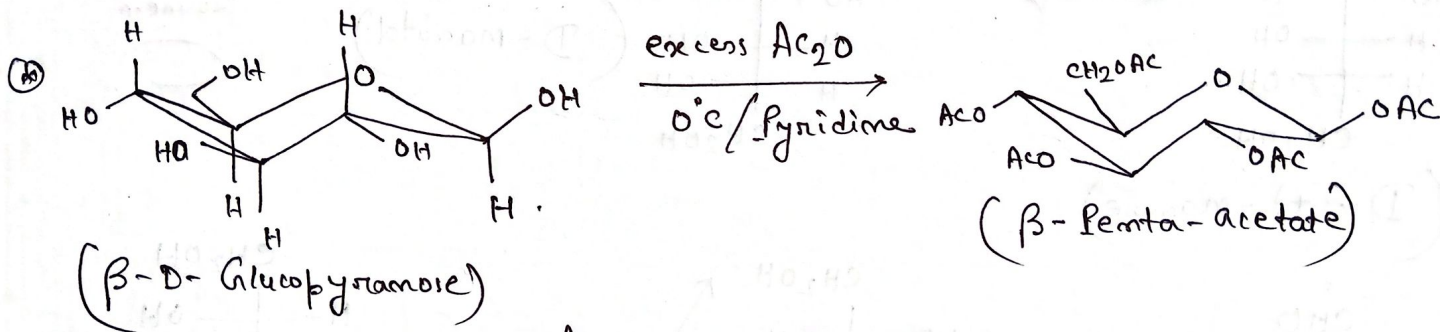 H
H
OH
O
HO
OH
HO
OH
H
H
H .
(β-D- Glucopyranose)
excess Ac2O
0°C/Pyridine
CH2OAC
O
ACO
OAC
ACO
OAC
(β- Penta-acetate)